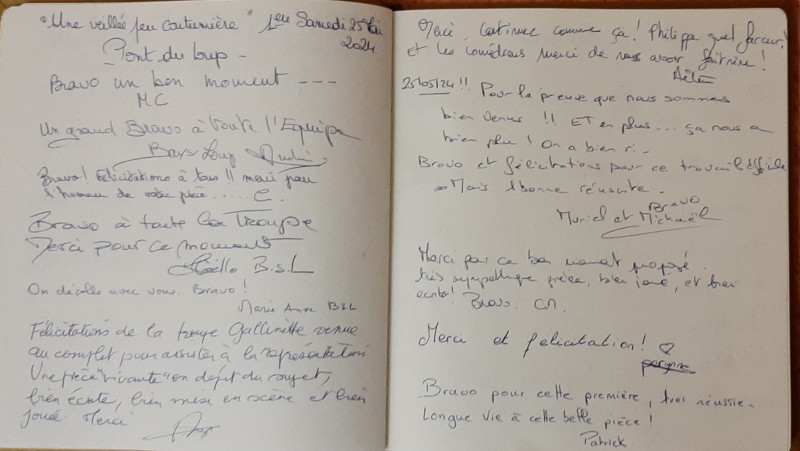 "Une veillée peu coutumière" 1ere Samedi 25 Mai
2024
Pont du loup -
Bravo un bon moment ---
MC
Un grand Bravo à toute l'Equipe
Bars/Loup
Bravo! Félicitations à tous !! merci pour
l'humour de votre pièce..... C.
Bravo à toute la Troupe
Merci pour ce moment
B.S.L
On décolle avec vous. Bravo !
Marie Anne BSL
Félicitations de la troupe Gallinette venue
au complet pour assister à la représentation
Une pièce "vivante" en dépit du sujet,
bien écrite, bien mise en scène et bien
jouée. Merci
Merci, continuez comme ça ! Philippe quel farceur !
et les comédiens merci de nous avoir fait rire !
25/05/24 !! Pour la preuve que nous sommes
bien venus !! ET en plus... ça nous a
bien plu ! On a bien ri -
Bravo et félicitations pour ce travail difficile
Mais bonne réussite -
Bravo
Muriel et Michaël
Merci pour ce bon moment proposé.
très sympathique pièce, bien joué, et bien
écrite! Bravo. CM
Merci et félicitation ! ♡
perrynne
Bravo pour cette première, très réussie -
Longue vie à cette belle pièce !
Patrick